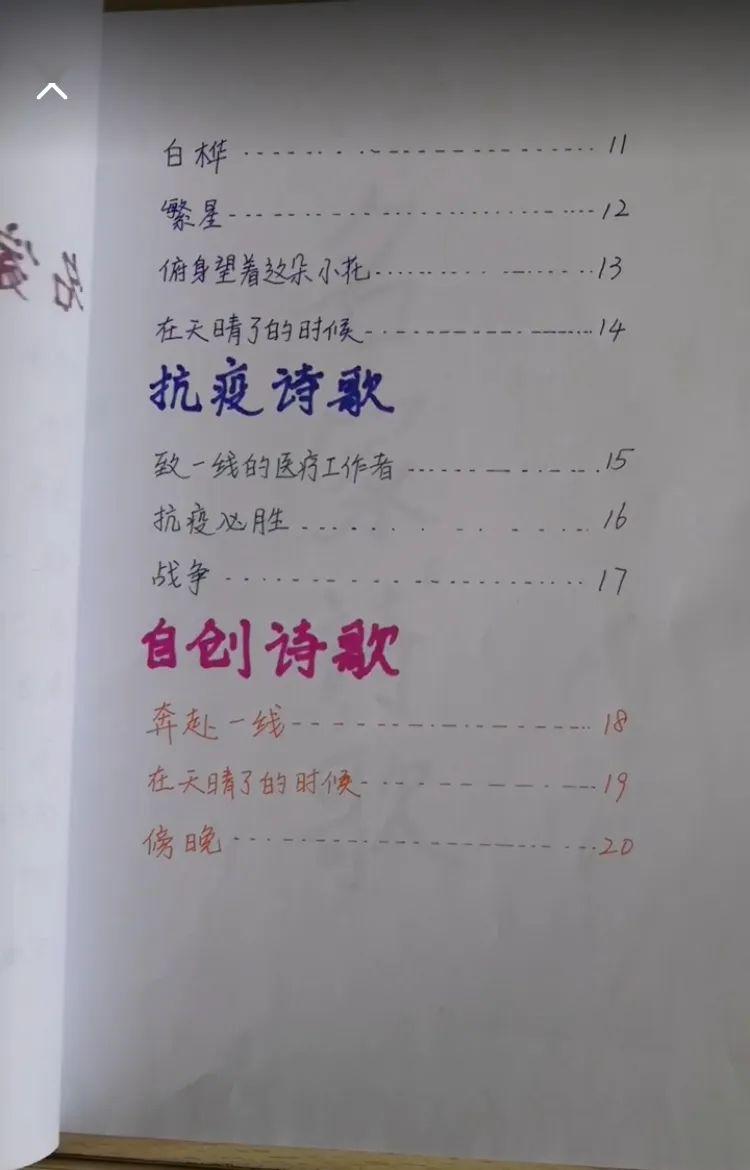 白桦 11
繁星 12
俯身望着这朵小花 13
在天晴了的时候 14
抗疫诗歌
致一线的医疗工作者 15
抗疫必胜 16
战争 17
自创诗歌
奔赴一线 18
在天晴了的时候 19
傍晚 20